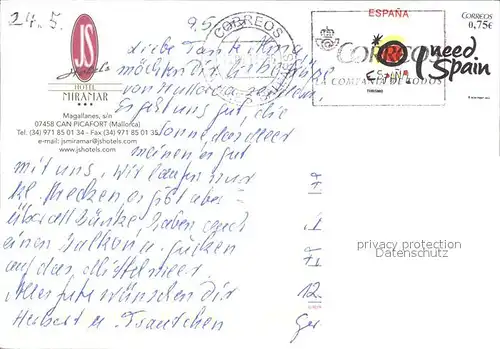 24.5.
9.5
JS
HOTEL
MIRAMAR
★★★
Magallanes, s/n
07458 CAN PICAFORT (Mallorca)
Tel. (34) 971 85 01 34 - Fax (34) 971 85 01 35
e-mail: jsmiramar@jshotels.com
www.jshotels.com
CORREOS
ESPAÑA
CORREOS
0,75€
CORREOS
LA COMPAÑIA DE TODOS
I need
Spain
ESPAÑA
TURISMO
Liebe Tante
möchten dir liebe Grüße
von Mallorca senden.
Es geht uns gut, die
Sonne, das Meer
meinen es gut
mit uns, wir laufen nur
kl. Strecken es gibt aber
überall Bänke haben auch
einen Balkon u. gucken
auf das Mittelmeer.
Alles Gute wünschen Dir
Herbert u. Trautchen
12.
privacy protection
Datenschutz